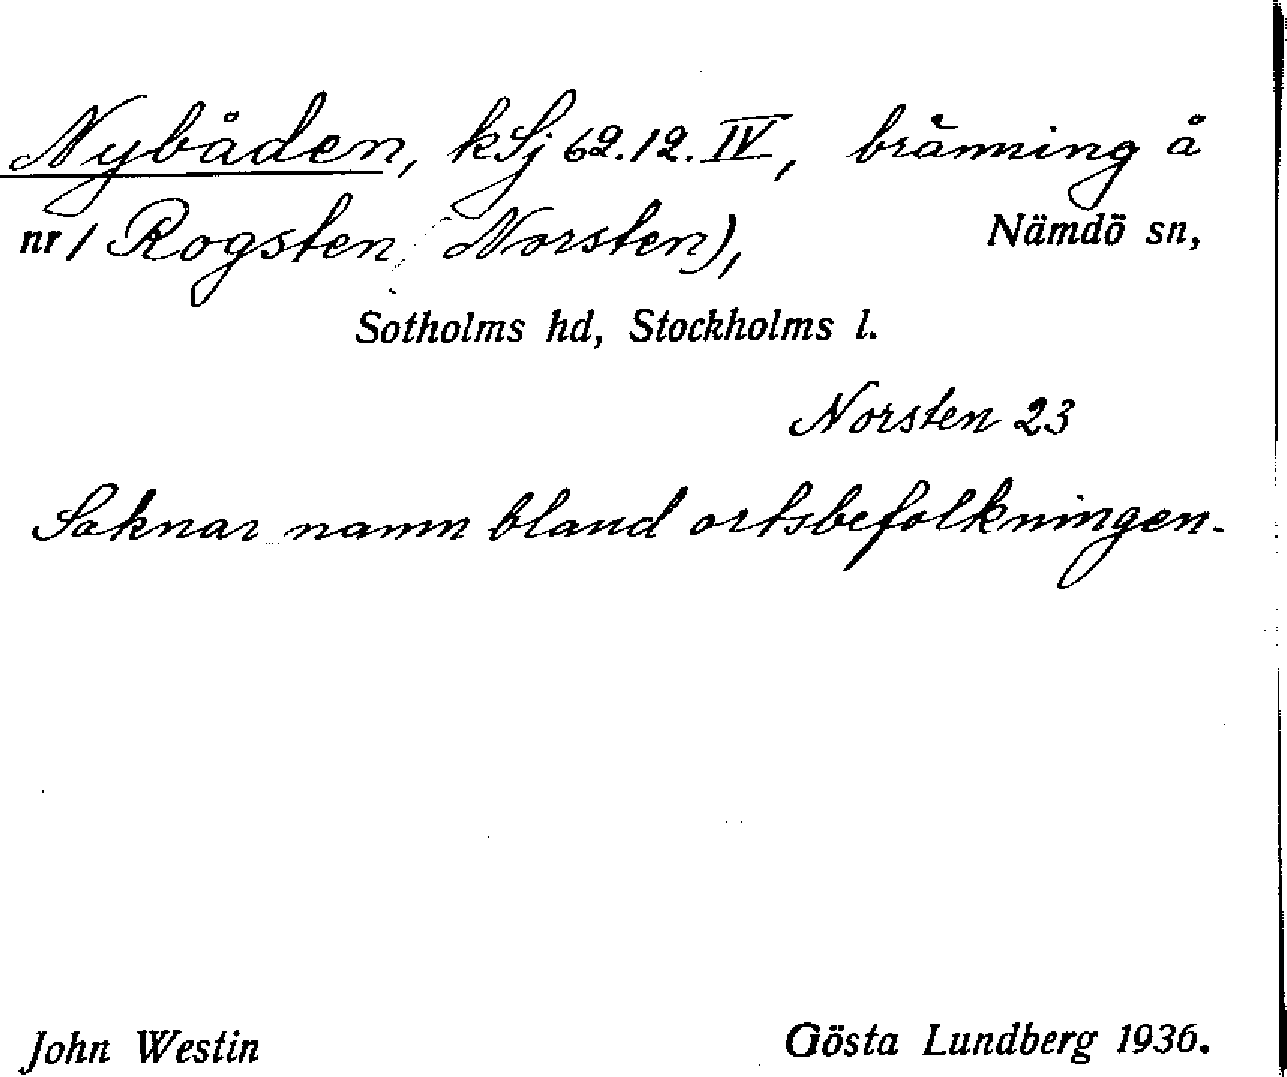 Nybåden, kSj 62.12.IV, bränning å
nr 1 Rogsten (Norsten), Nämdö sn,
Sotholms hd, Stockholms l.
Norsten 23
Saknar namn bland ortsbefolkningen.
John Westin Gösta Lundberg 1936.